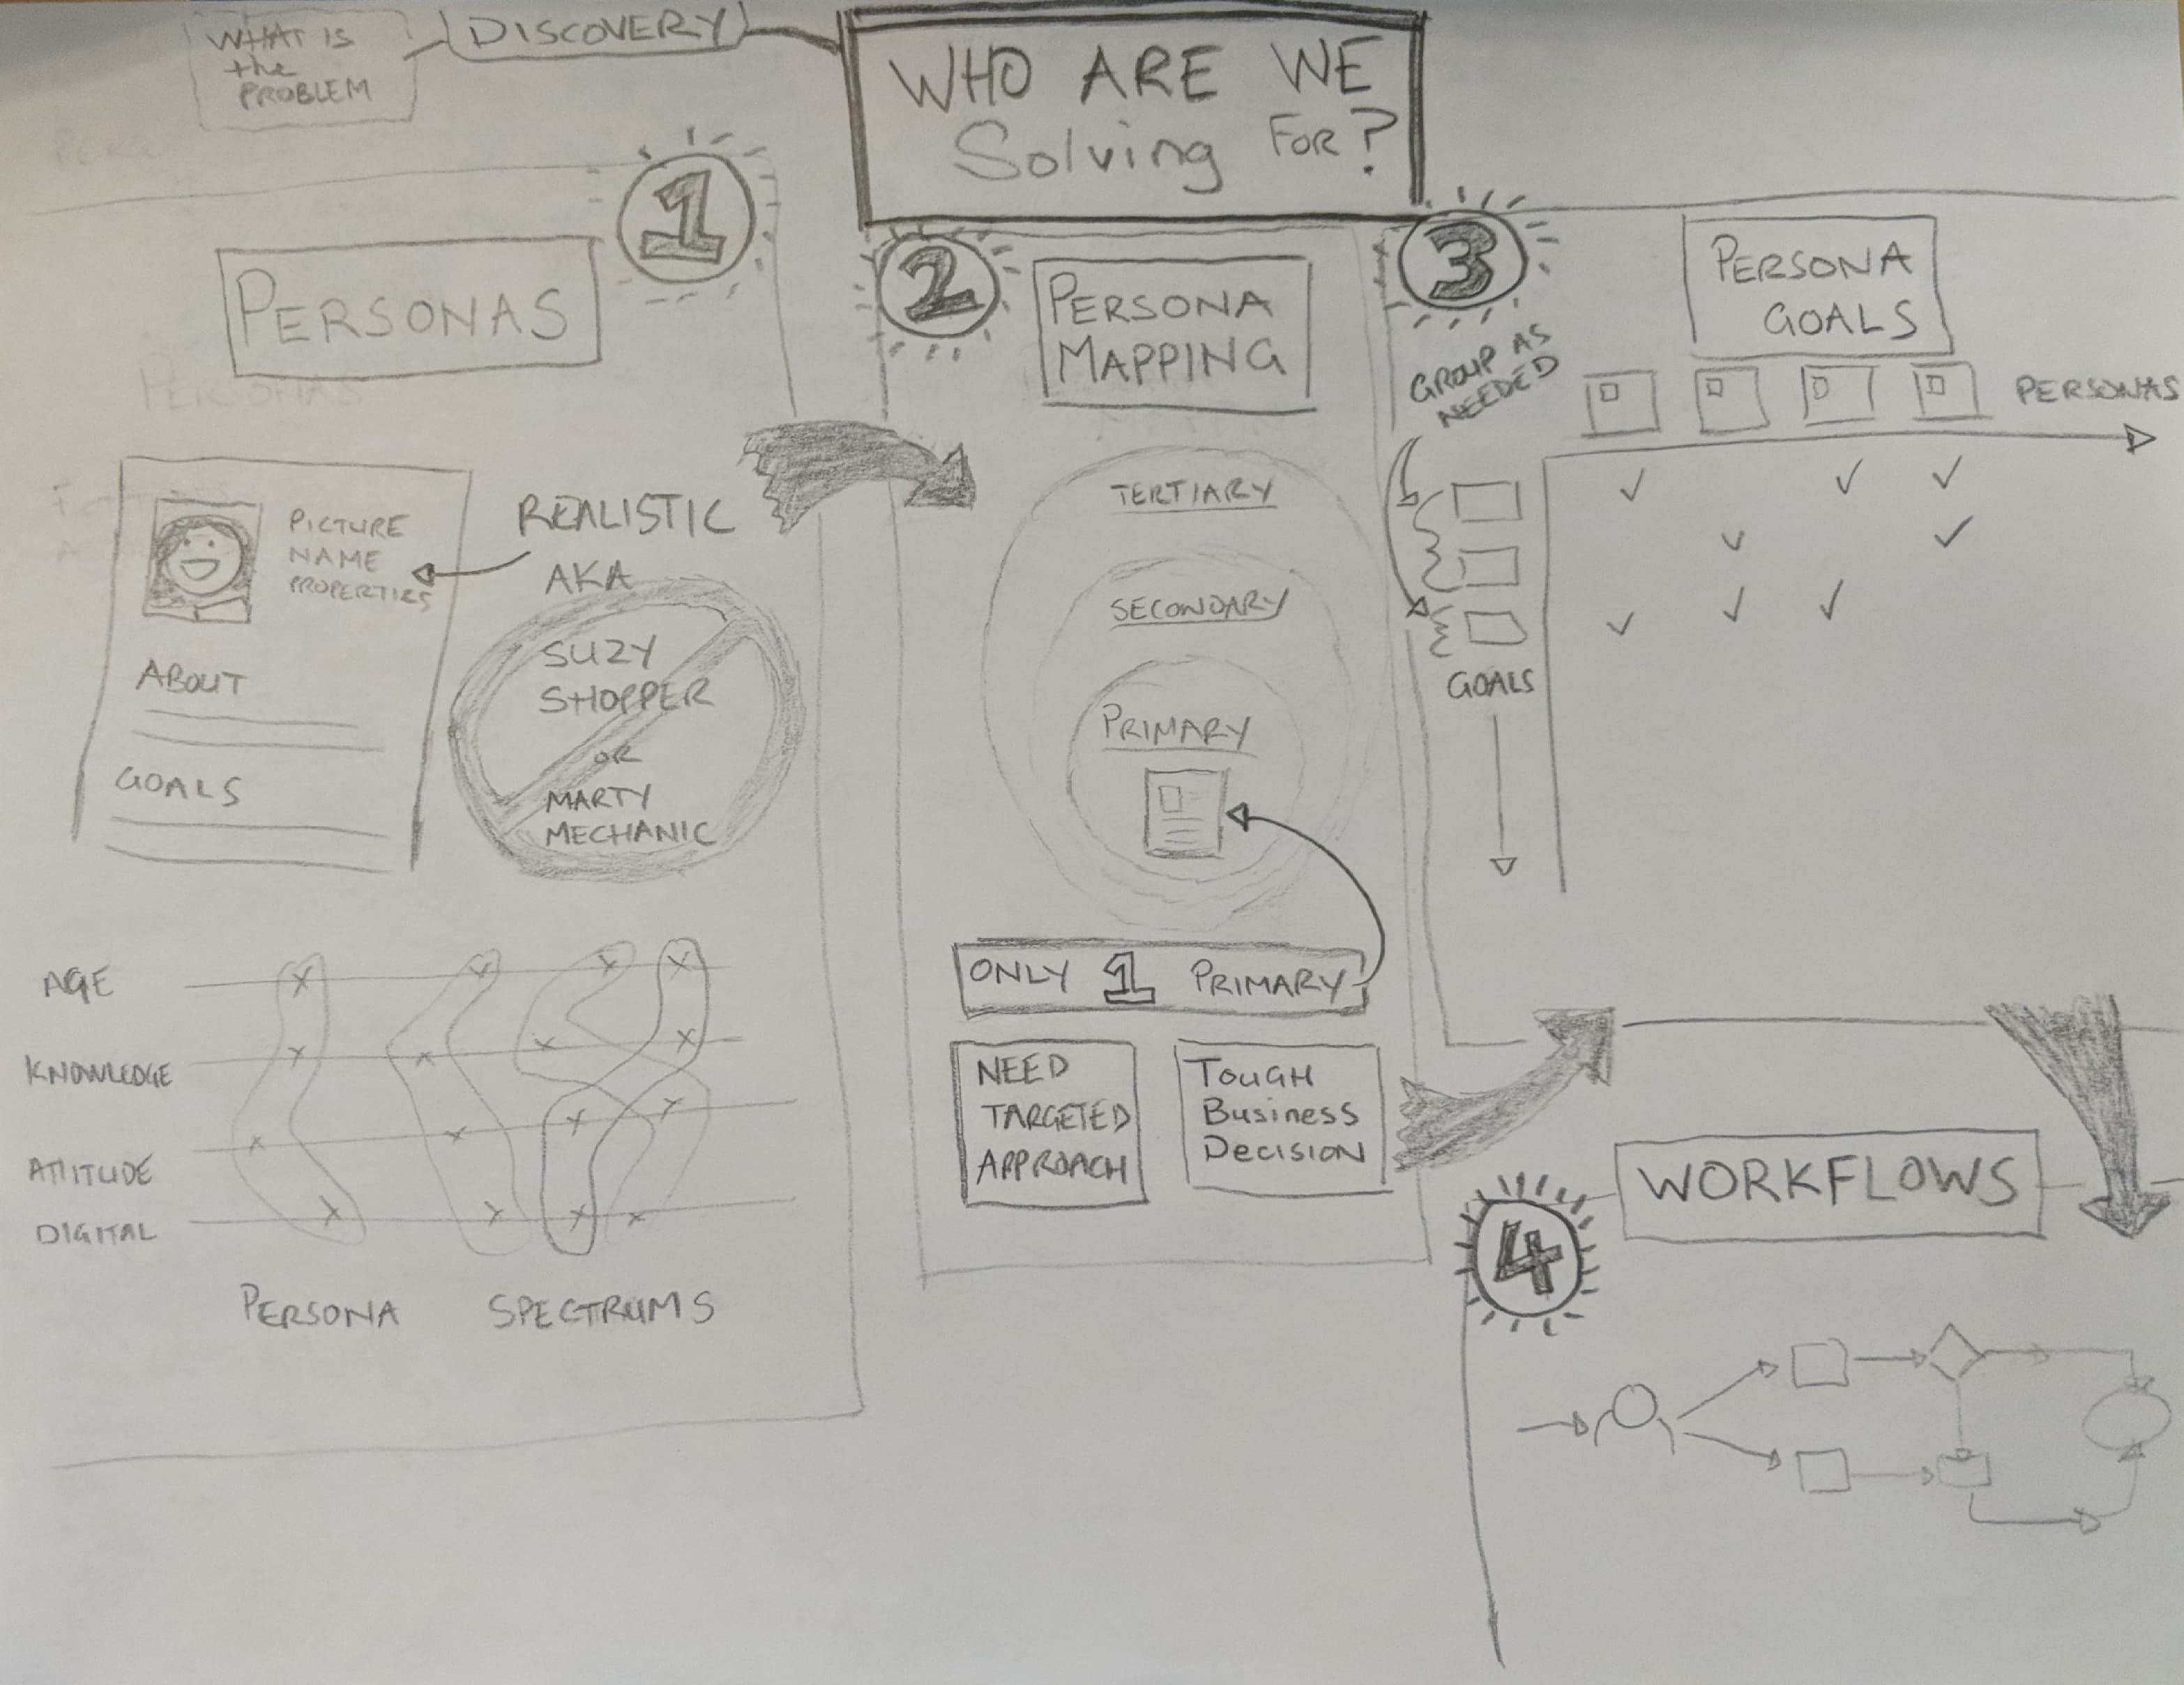 WHAT IS
the
PROBLEM
DISCOVERY
WHO ARE WE
Solving FOR?
1
PERSONAS
PERSONAS
PICTURE
NAME
PROPERTIES
REALISTIC
AKA
SUZY
SHOPPER
OR
MARTY
MECHANIC
ABOUT
GOALS
AGE
KNOWLEDGE
ATTITUDE
DIGITAL
PERSONA SPECTRUMS
2
PERSONA
MAPPING
TERTIARY
SECONDARY
PRIMARY
ONLY 1 PRIMARY
NEED
TARGETED
APPROACH
TOUGH
BUSINESS
DECISION
3
PERSONA
GOALS
GROUP AS
NEEDED
PERSONAS
GOALS
4
WORKFLOWS